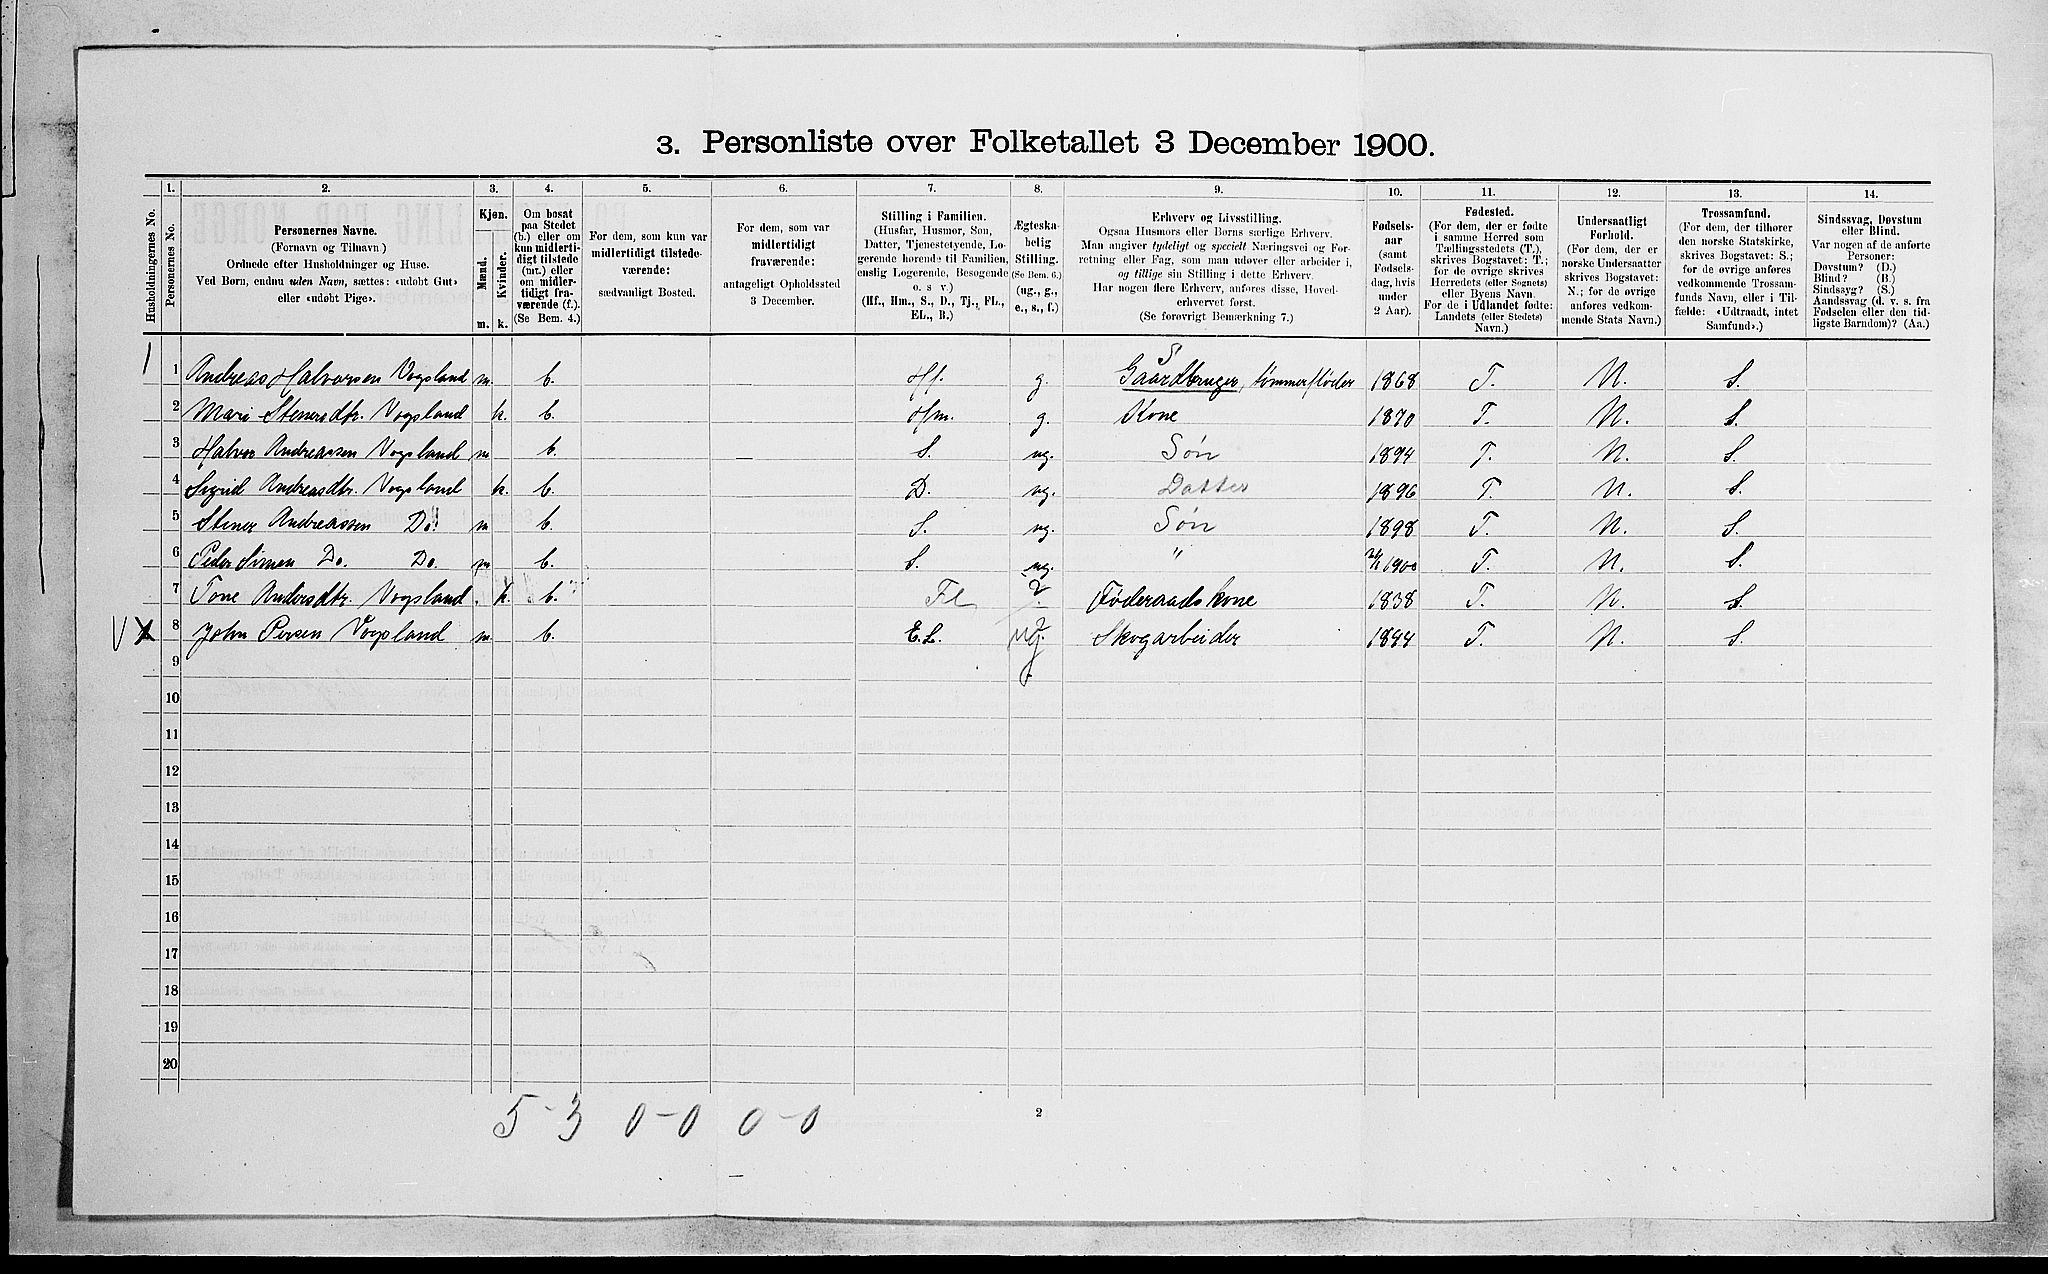 3. Personliste over Folketallet 3 December 1900.
1. 2. 3. 4. 5. 6. 7. 8. 9. 10. 11. 12. 13. 14.
Husholdningernes No.
Personernes No.
Personernes Navne.
(Fornavn og Tilnavn)
Ordnede efter Husholdninger og Huse.
Ved Børn, endnu uden Navn, sættes: «udøbt Gut»
eller «udøbt Pige».
Kjøn.
Mænd.
Kvinder.
m. k.
Om bosat
paa Stedet
(b.) eller om
kun midlerti-
digt tilstede
(mt.) eller
om midler-
tidigt fra-
værende (f.).
(Se Bem. 4.)
For dem, som kun var
midlertidigt tilstede-
værende:
sædvanligt Bosted.
For dem, som var
midlertidigt
fraværende:
antageligt Opholdssted
3 December.
Stilling i Familien.
(Husfar, Husmor, Søn,
Datter, Tjenestetyende, Lo-
gerende hørende til Familien,
enslig Logerende, Besøgende
o. s. v.)
(Hf., Hm., S., D., Tj., FL.,
EL., B.)
Ægteska-
belig
Stilling.
(Se Bem. 6.)
(ug., g.,
e., s., f.)
Erhverv og Livsstilling.
Ogsaa Husmors eller Børns særlige Erhverv.
Man angiver tydeligt og specielt Næringsvei og For-
retning eller Fag, som man udøver eller arbeider i,
og tillige sin Stilling i dette Erhverv.
Har nogen flere Erhverv, anføres disse, Hoved-
erhvervet først.
(Se forøvrigt Bemærkning 7.)
Fødsels-
aar
(samt
Fødsels-
dag, hvis
under
2 Aar).
Fødested.
(For dem, der er fødte
i samme Herred som
Tællingsstedets (T.),
skrives Bogstavet: T.;
for de øvrige skrives
Herredets (eller Sognets)
eller Byens Navn.
For de i Udlandet fødte:
Landets (eller Stedets)
Navn.)
Undersaatligt
Forhold.
(For dem, der er
norske Undersaatter
skrives Bogstavet:
N.; for de øvrige
anføres vedkom-
mende Stats Navn.)
Trossamfund.
(For dem, der tilhører
den norske Statskirke,
skrives Bogstavet: S.;
for de øvrige anføres
vedkommende Trossam-
funds Navn, eller i Til-
fælde: «Udtraadt, intet
Samfund».)
Sindssvag, Døvstum
eller Blind.
Var nogen af de anførte
Personer:
Døvstum? (D.)
Blind? (B.)
Sindssyg? (S.)
Aandssvag (d. v. s. fra
Fødselen eller den tid-
ligste Barndom)? (Aa.)
S
1 1 Andreas Halvorsen Vogsland m. b. Hf. g. Gaardbruger, tømmerfløder 1868 T. N. S.
2 Mari Stenersdtr. Vogsland k. b. Hm. g. Kone 1870 T. N. S.
3 Halvor Andreassen Vogsland m b. S. ug. Søn 1894 T. N. S.
4 Sigrid Andreasdtr. Vogsland k. b. D. ug. Datter 1896 T. N. S.
5 Stener Andreassen Do. m b. S. ug. Søn 1898 T. N. S.
6 Peder Simen Do. Do. m b. S. ug. " 1900 T. N. S.
7 Tone Andersdtr. Vogsland. k. b. FL Føderaadskone 1838 T. N. S.
8 John Persen Vogsland m. b. E.L. Skogarbeider 1844 T. N. S.
9
10
11
12
13
14
15
16
17
18
19
20
5-3 0-0 0-0
2